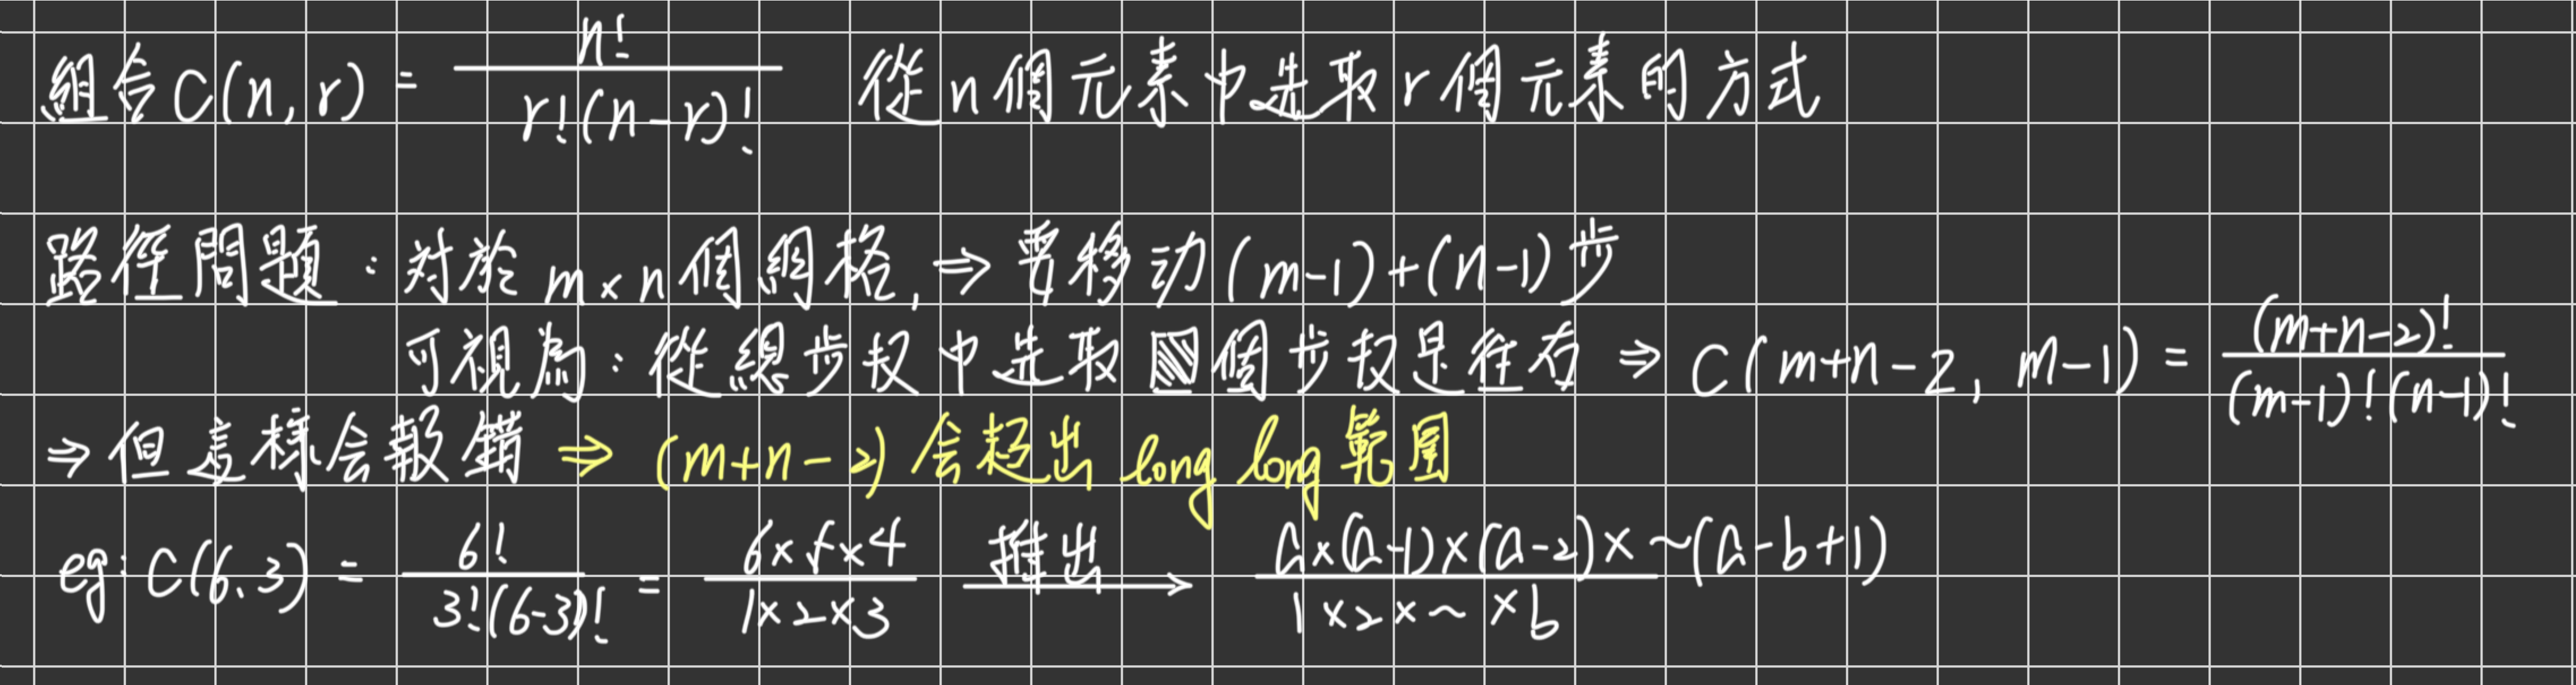 組合 C(n, r) = n! / r!(n-r)! 從 n 個元素中选取 r 個元素的方式
路徑問題：对於 m×n 個網格, ⇒ 要移动 (m-1)+(n-1) 步
可視為：從總步数中选取 個步数是往右 ⇒ C(m+n-2, m-1) = (m+n-2)! / (m-1)!(n-1)!
⇒ 但這樣会報錯 ⇒ (m+n-2) 会超出 long long 範圍
eg: C(6,3) = 6! / 3!(6-3)! = 6×5×4 / 1×2×3 推出→ a×(a-1)×(a-2)×~(a-b+1) / 1×2×~×b